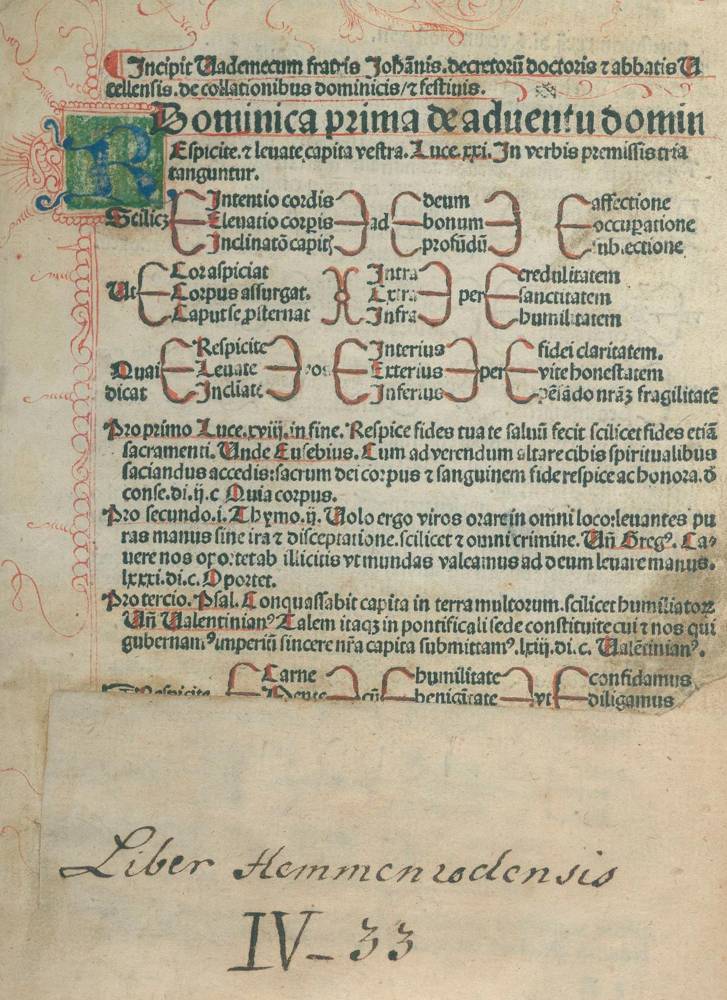 Incipit Vademecum fratris Johānis. decretorū doctoris ⁊ abbatis Ni
cellensis. de collationibus dominicis/⁊ festiuis.
Dominica prima de aduentu domin
REspicite. ⁊ leuate capita vestra. Luce. xxi. In verbis premissis tria
tanguntur.
Intentio cordis deum affectione
Scilicꝫ Eleuatio corpis ad bonum occupatione
Inclinatō capitꝭ profūdū subiectione
Cor aspiciat Intra credulitatem
Ut Corpus assurgat. Extra per sanctitatem
Caput se ꝓsternat Infra humilitatem
Respicite Interius fidei claritatem.
Quai Leuate Exterius per vite honestatem
dicat Incliāte Inferius nrāꝫ fragilitatē
Pro primo Luce. xviij. in fine. Respice fides tua te saluū fecit scilicet fides etiā
sacramenti. Unde Eusebius. Cum ad verendum altare cibis spiritualibus
saciandus accedis: sacrum dei corpus ⁊ sanguinem fide respice ac honora. d̄
conse. di. ij. c Quia corpus.
Pro secundo. i. Thymo. ij. Uolo ergo viros orare in omni loco: leuantes pu
ras manus sine ira ⁊ disceptatione. scilicet ⁊ omni crimine. Uñ Gregꝰ. Ca
uere nos oportet ab illicitis vt mundas valeamus ad deum leuare manus.
lxxxi. di. c. Oportet.
Pro tercio. Psal. Conquassabit capita in terra multorum. scilicet humiliatoꝝ
Uñ Ualentinianꝰ Talem itaqꝫ in pontificali sede constituite cui ⁊ nos qui
gubernamꝰ imperiū sincere nrā capita submittamꝰ. lxiij. di. c. Ualētinianꝰ.
Carne humilitate confidamus
Respicite Mente cū benignitate vt diligamus
Liber Hemmenrodensis
IV-33